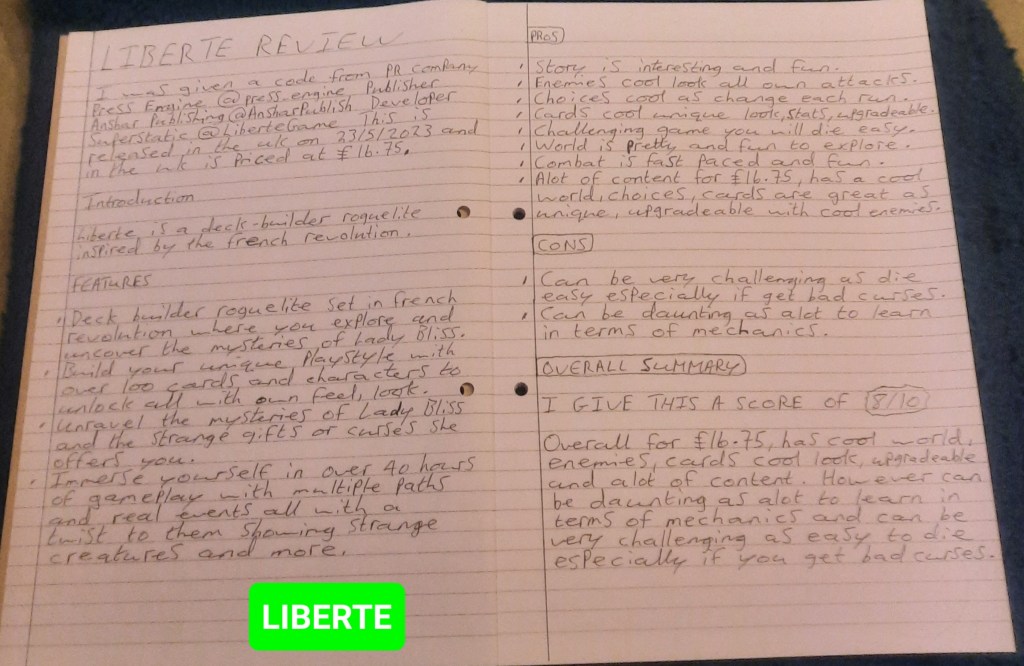 LIBERTE REVIEW
I was given a code from PR company
Press Engine @press_engine, Publisher
Anshar Publishing @AnsharPublish Developer
Superstatic @LiberteGame This is
released in the uk on 23/5/2023 and
in the uk is priced at £16.75.
Introduction
Liberte is a deck-builder roguelite
inspired by the french revolution.
FEATURES
Deck builder roguelite set in french
revolution where you explore and
uncover the mysteries of Lady Bliss.
Build your unique playstyle with
over 100 cards, and characters to
unlock all with own feel, look.
Unravel the mysteries of Lady Bliss
and the strange gifts or curses she
offers you.
Immerse yourself in over 40 hours
of gameplay with multiple paths
and real events all with a
twist to them showing strange
creatures and more.
PROS
Story is interesting and fun.
Enemies cool look all own attacks.
Choices cool as change each run.
Cards cool unique look, stats, upgradeable.
Challenging game you will die easy.
World is pretty and fun to explore.
Combat is fast paced and fun.
Alot of content for £16.75, has a cool
world, choices, cards are great as
unique, upgradeable with cool enemies.
CONS
Can be very challenging as die
easy especially if get bad curses.
Can be daunting as alot to learn
in terms of mechanics.
OVERALL SUMMARY
I GIVE THIS A SCORE OF 8/10
Overall for £16.75, has cool world,
enemies, cards cool look, upgradeable
and alot of content. However can
be daunting as alot to learn in
terms of mechanics and can be
very challenging as easy to die
especially if you get bad curses.
LIBERTE